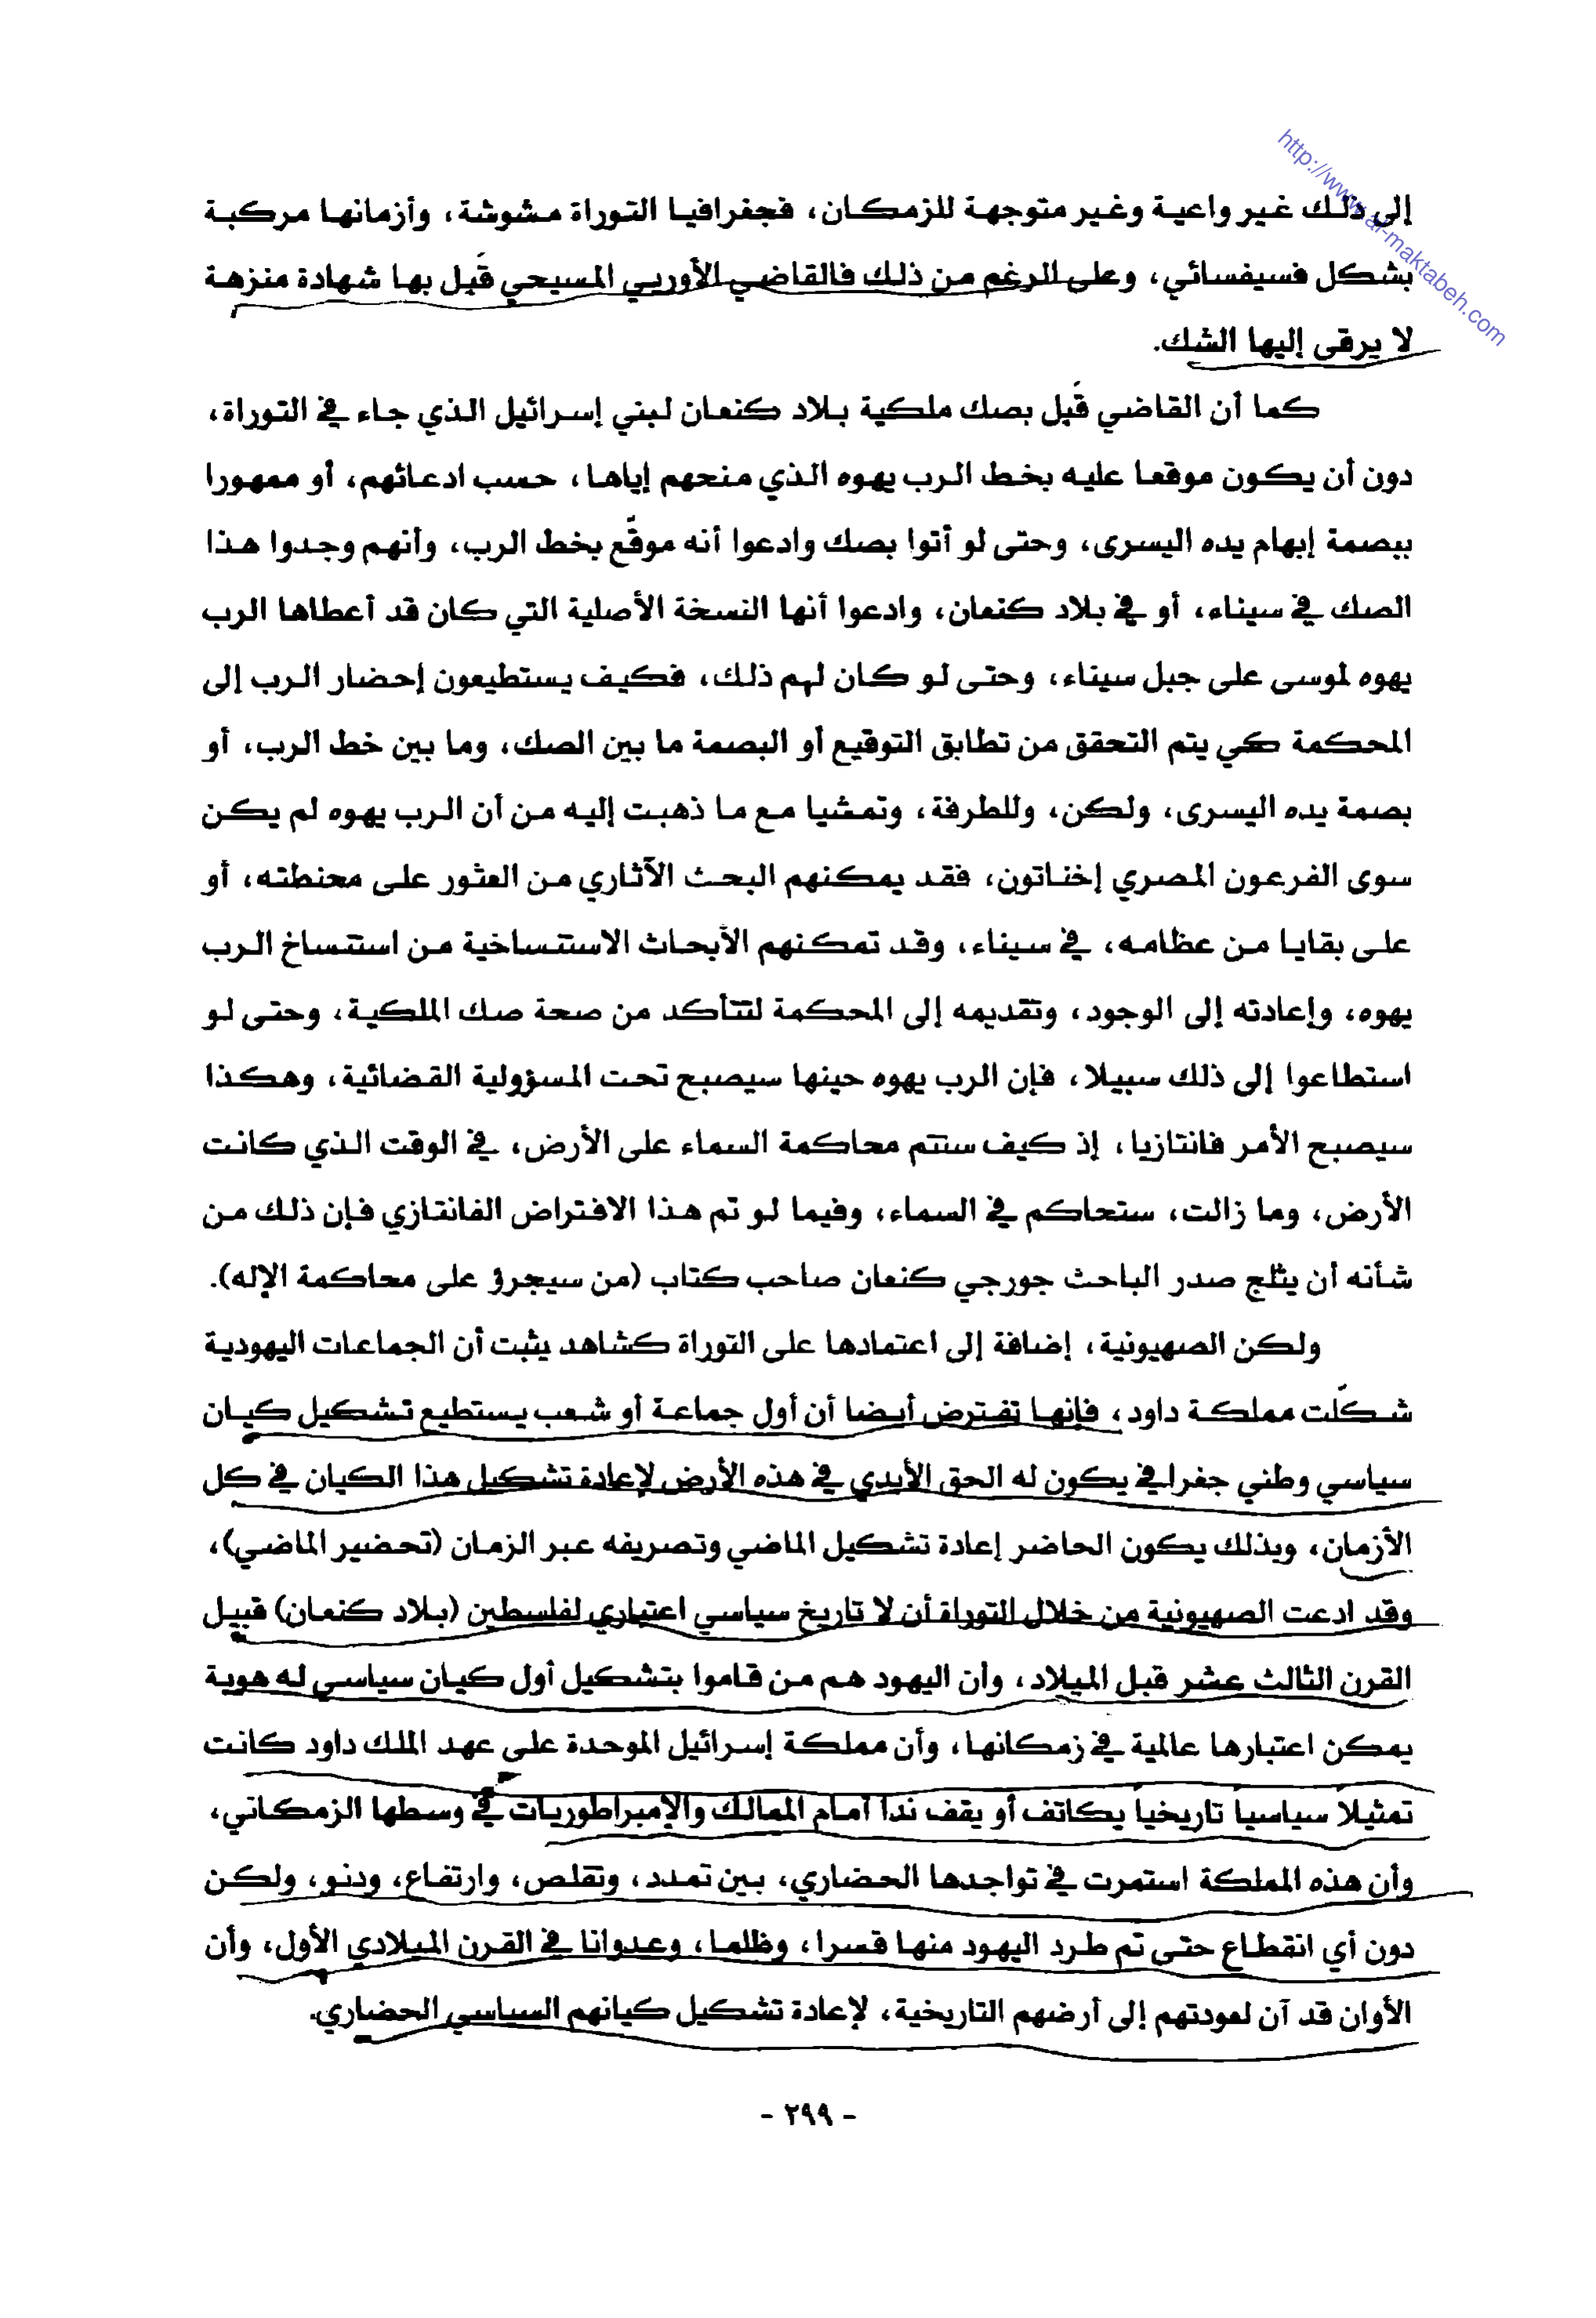 http://www.al-maktabeh.com
إلى ذلك غير واعية وغير متوجهة للزمكان، فجغرافيا التوراة مشوشة، وأزمانها مركبة
بشكل فسيفسائي، وعلى الرغم من ذلك فالقاضي الأوربي المسيحي قَبل بها شهادة منزهة
لا يرقى إليها الشك.
كما أن القاضي قَبل بصك ملكية بلاد كنعان لبني إسرائيل الذي جاء في التوراة،
دون أن يكون موقعا عليه بخط الرب يهوه الذي منحهم إياها، حسب ادعائهم، أو ممهورا
ببصمة إبهام يده اليسرى، وحتى لو أتوا بصك وادعوا أنه موقّع بخط الرب، وأنهم وجدوا هذا
الصك في سيناء، أو في بلاد كنعان، وادعوا أنها النسخة الأصلية التي كان قد أعطاها الرب
يهوه لموسى على جبل سيناء، وحتى لو كان لهم ذلك، فكيف يستطيعون إحضار الرب إلى
المحكمة كي يتم التحقق من تطابق التوقيع أو البصمة ما بين الصك، وما بين خط الرب، أو
بصمة يده اليسرى، ولكن، وللطرفة، وتمشيا مع ما ذهبت إليه من أن الرب يهوه لم يكن
سوى الفرعون المصري إخناتون، فقد يمكنهم البحث الآثاري من العثور على محنطته، أو
على بقايا من عظامه، في سيناء، وقد تمكنهم الأبحاث الاستنساخية من استنساخ الرب
يهوه، وإعادته إلى الوجود، وتقديمه إلى المحكمة لتتأكد من صحة صك الملكية، وحتى لو
استطاعوا إلى ذلك سبيلا، فإن الرب يهوه حينها سيصبح تحت المسؤولية القضائية، وهكذا
سيصبح الأمر فانتازيا، إذ كيف ستتم محاكمة السماء على الأرض، في الوقت الذي كانت
الأرض، وما زالت، ستحاكم في السماء، وفيما لو تم هذا الافتراض الفانتازي فإن ذلك من
شأنه أن يثلج صدر الباحث جورجي كنعان صاحب كتاب (من سيجرؤ على محاكمة الإله).
ولكن الصهيونية، إضافة إلى اعتمادها على التوراة كشاهد يثبت أن الجماعات اليهودية
شكّلت مملكة داود، فإنها تفترض أيضا أن أول جماعة أو شعب يستطيع تشكيل كيان
سياسي وطني جغرافي يكون له الحق الأبدي في هذه الأرض لإعادة تشكيل هذا الكيان في كل
الأزمان، وبذلك يكون الحاضر إعادة تشكيل الماضي وتصريفه عبر الزمان (تحضير الماضي)،
وقد ادعت الصهيونية من خلال التوراة أن لا تاريخ سياسي اعتباري لفلسطين (بلاد كنعان) قبيل
القرن الثالث عشر قبل الميلاد، وأن اليهود هم من قاموا بتشكيل أول كيان سياسي له هوية
يمكن اعتبارها عالمية في زمكانها، وأن مملكة إسرائيل الموحدة على عهد الملك داود كانت
تمثيلا سياسيا تاريخيا يكاتف أو يقف ندا أمام الممالك والإمبراطوريات في وسطها الزمكاني،
وأن هذه المملكة استمرت في تواجدها الحضاري، بين تمدد، وتقلص، وارتفاع، ودنو، ولكن
دون أي انقطاع حتى تم طرد اليهود منها قسرا، وظلما، وعدوانا في القرن الميلادي الأول، وأن
الأوان قد آن لعودتهم إلى أرضهم التاريخية، لإعادة تشكيل كيانهم السياسي الحضاري.
- ٢٩٩ -